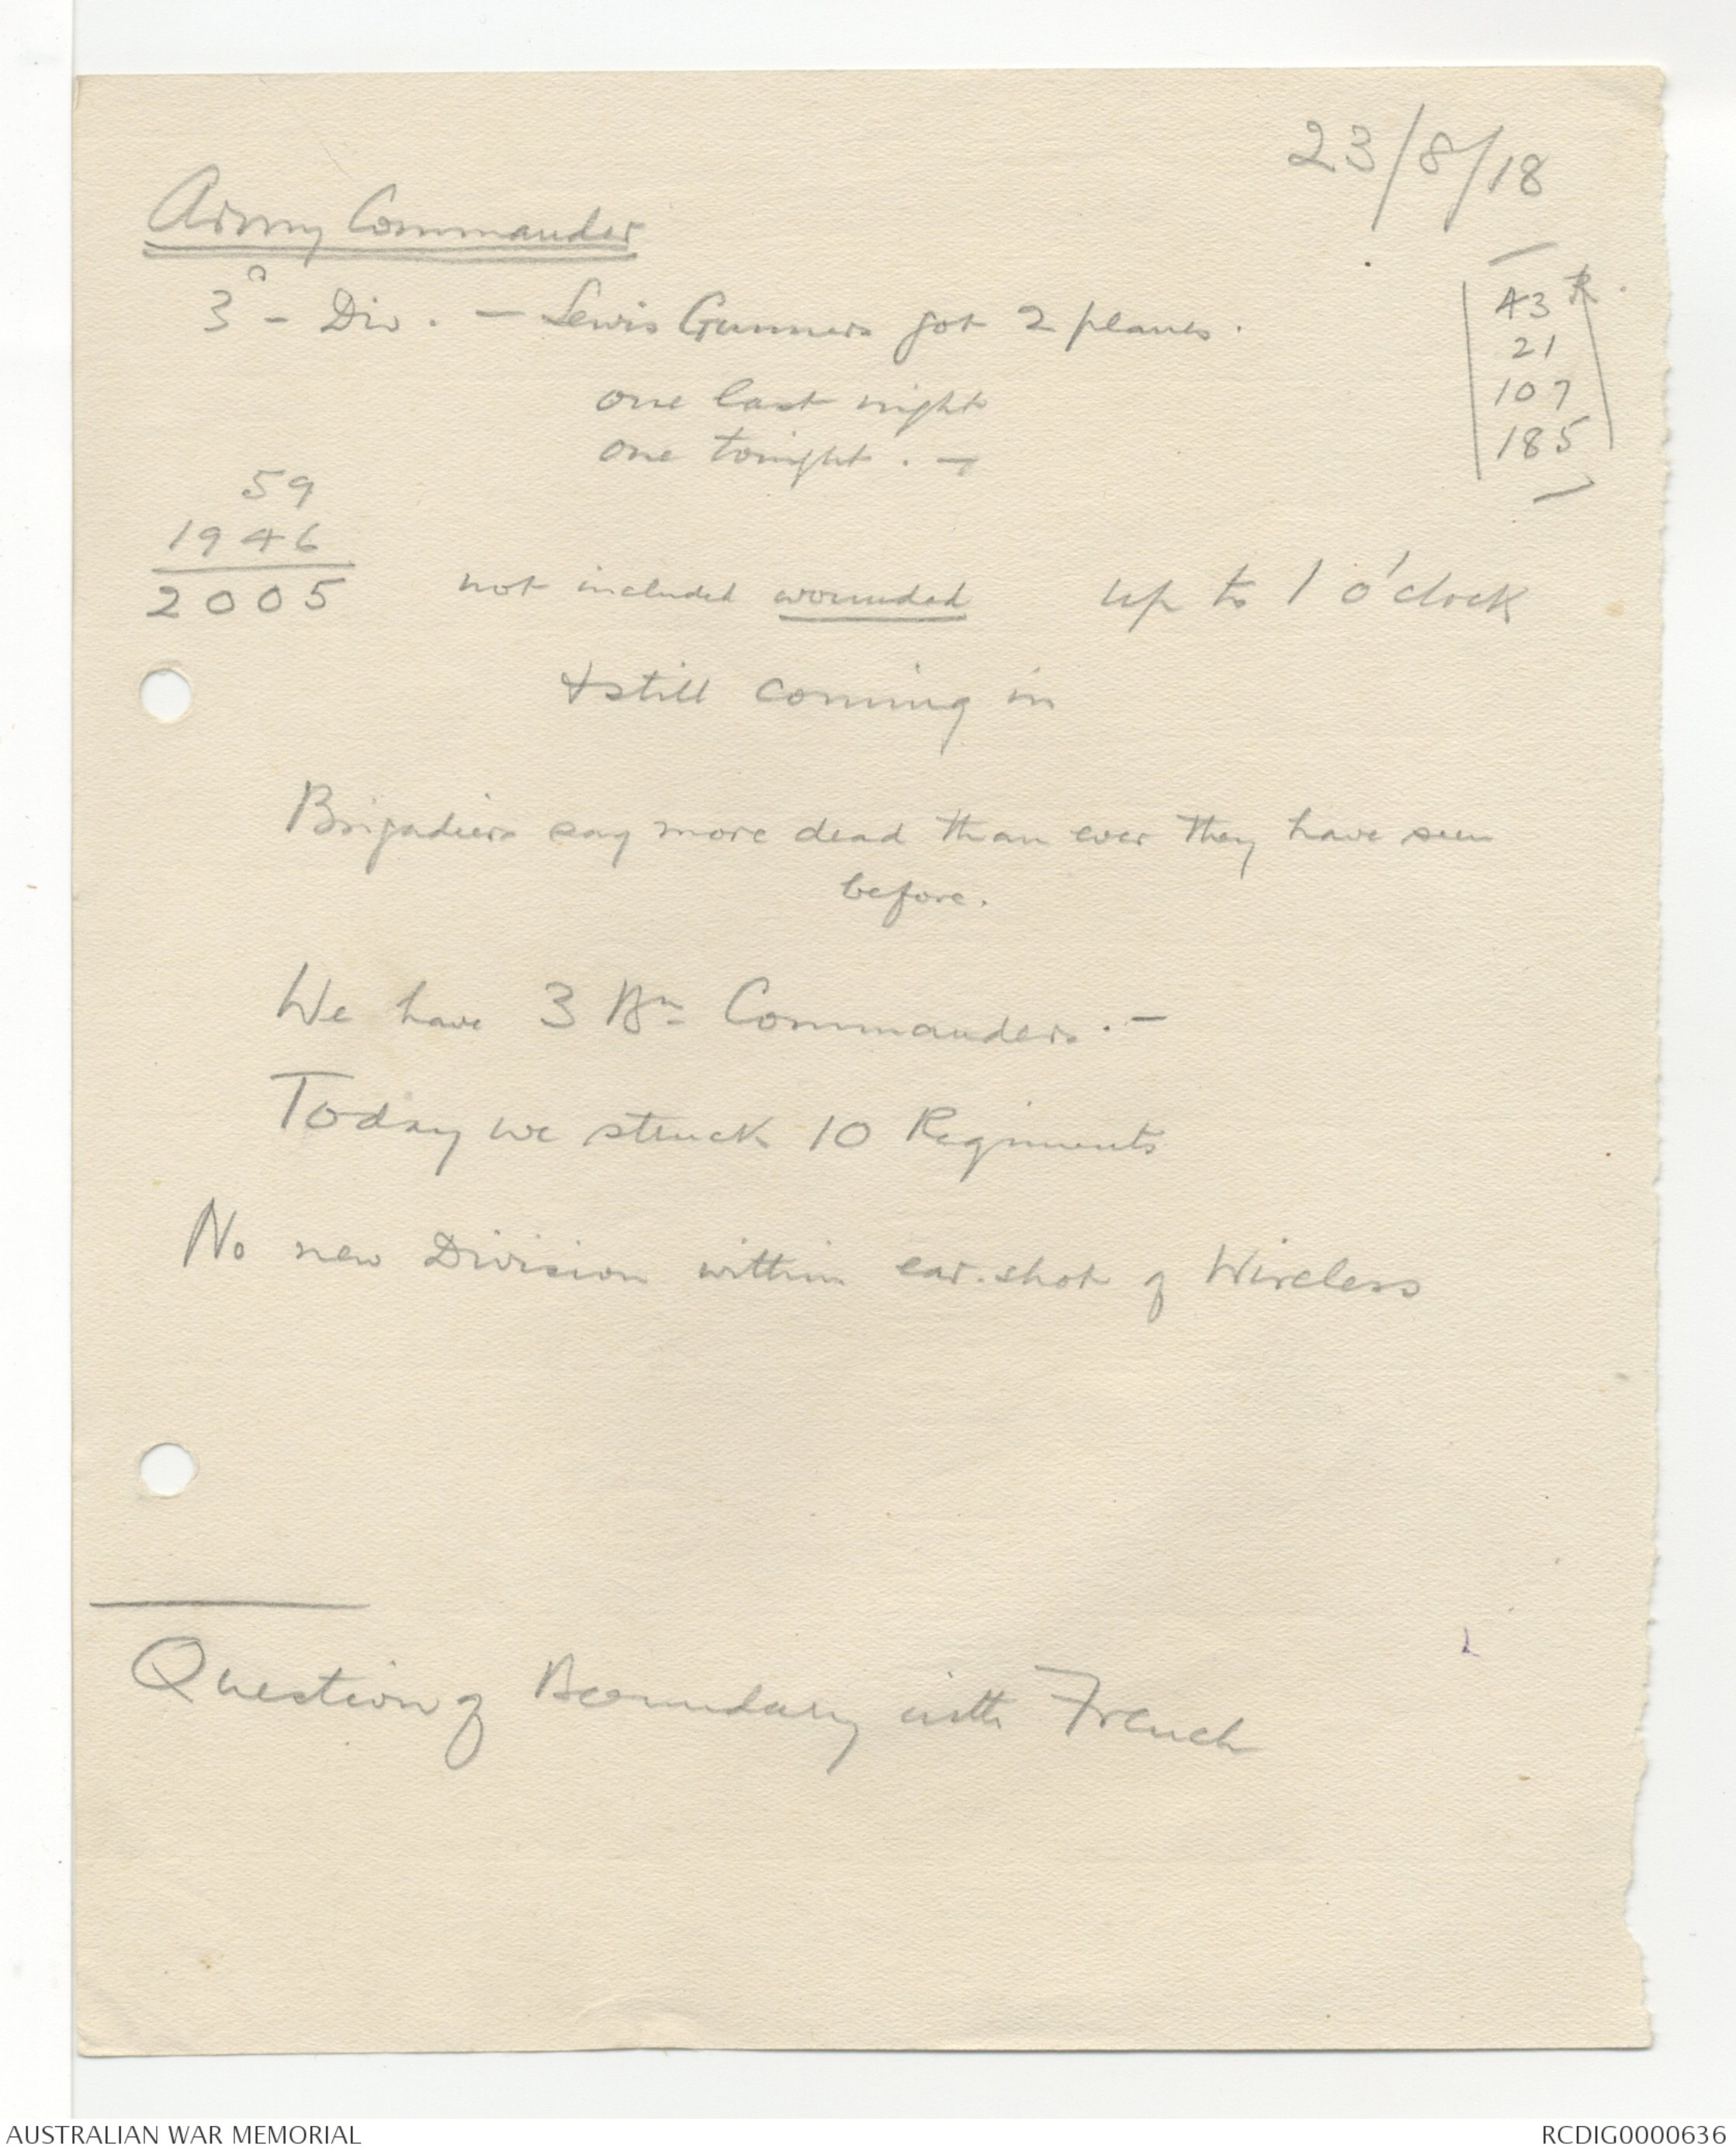 23/8/18
Army Commander
3ᵈ - Div. - Lewis Gunners got 2 planes.
one last night
one tonight. -
43 R.
21
107
185
59
1946
2005 not included wounded up to 1 o'clock
& still coming in
Brigadiers say more dead than ever they have seen
before.
We have 3 Bn Commanders. -
Today we struck 10 Regiments
No new Division within ear-shot of Wireless
Question of Boundary with French
AUSTRALIAN WAR MEMORIAL
RCDIG0000636